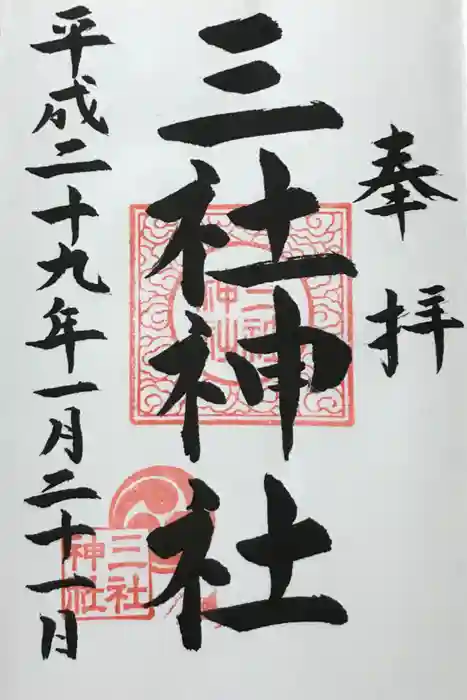 奉拝
三社神社
三社
神社
三社
神社
平成二十九年一月二十一日